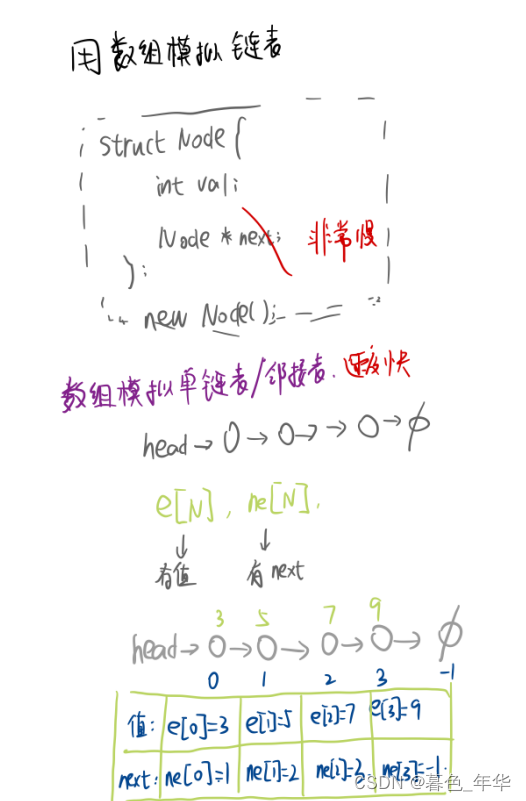 用数组模拟链表
struct Node {
int val;
Node * next; 非常慢
};
new Node();
数组模拟单链表/邻接表. 速度快
head → O → O → → O → ∅
e[N], ne[N].
↓ ↓
存值 存next
3 5 7 9
head → O → O → O → O → ∅
0 1 2 3 -1
值: e[0]=3 e[1]=5 e[2]=7 e[3]=9
next: ne[0]=1 ne[1]=2 ne[2]=2 ne[3]=-1.
CSDN @暮色_年华